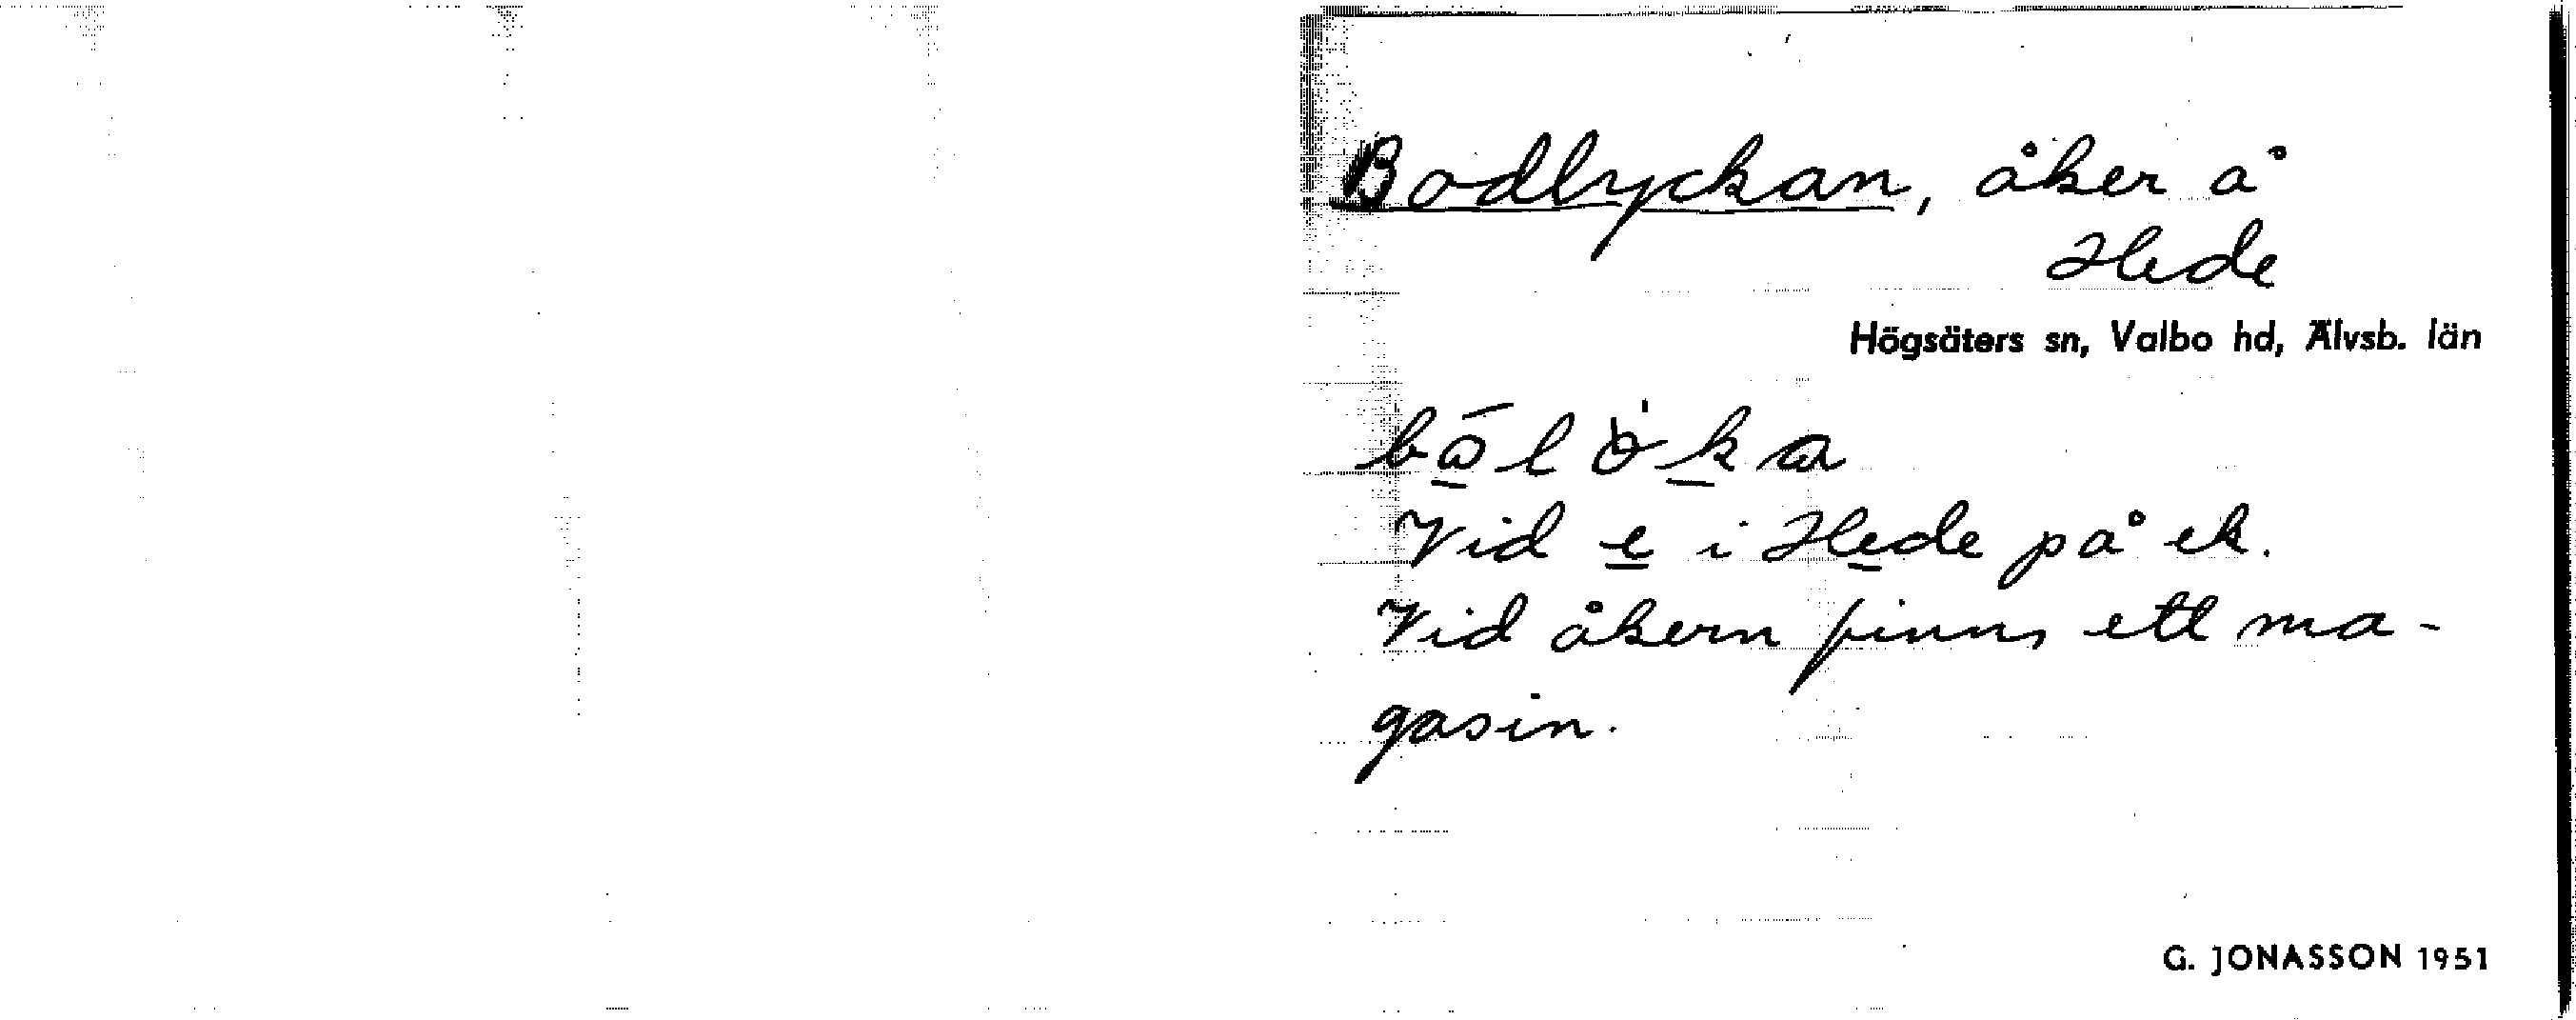 Bodlyckan, åker å
Hede
Högsäters sn, Valbo hd, Älvsb. län
Vid e i Hede på ek.
Vid åkern finns ett ma-
gasin.
G. JONASSON 1951